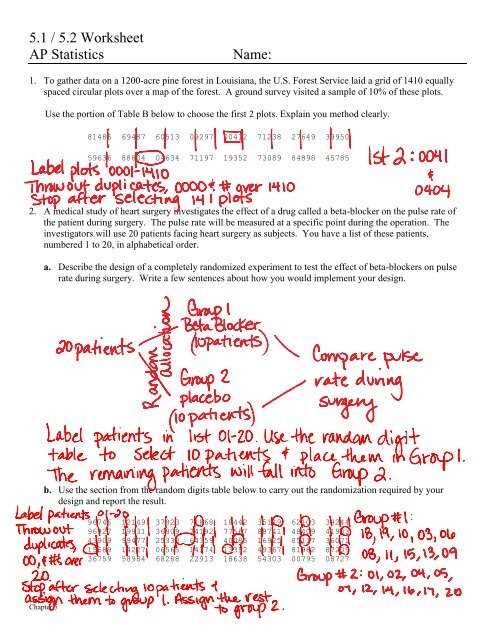 5.1 / 5.2 Worksheet
AP Statistics Name:
1. To gather data on a 1200-acre pine forest in Louisiana, the U.S. Forest Service laid a grid of 1410 equally
spaced circular plots over a map of the forest. A ground survey visited a sample of 10% of these plots.
Use the portion of Table B below to choose the first 2 plots. Explain you method clearly.
81486 69487 60513 09297 00412 71238 27649 39950
59636 88804 04634 71197 19352 73089 84898 45785
1st 2: 0041
&
0404
Label plots 0001-1410
Throw out duplicates, 0000 & # over 1410
Stop after selecting 141 plots
2. A medical study of heart surgery investigates the effect of a drug called a beta-blocker on the pulse rate of
the patient during surgery. The pulse rate will be measured at a specific point during the operation. The
investigators will use 20 patients facing heart surgery as subjects. You have a list of these patients,
numbered 1 to 20, in alphabetical order.
a. Describe the design of a completely randomized experiment to test the effect of beta-blockers on pulse
rate during surgery. Write a few sentences about how you would implement your design.
20 patients
Random
allocation
Group 1
Beta Blocker
(10 patients)
Group 2
placebo
(10 patients)
Compare pulse
rate during
surgery
Label patients in list 01-20. Use the random digit
table to select 10 patients & place them in Group 1.
The remaining patients will fall into Group 2.
b. Use the section from the random digits table below to carry out the randomization required by your
design and report the result.
Label patients 01-20
Throw out
duplicates,
00, & #s over
20.
Stop after selecting 10 patients &
assign them to group 1. Assign the rest
to group 2.
36759 58984 68298 22913 18638 54303 00795 08727
Group #1:
18, 19, 10, 03, 06
08, 11, 15, 13, 09
Group #2: 01, 02, 04, 05,
07, 12, 14, 16, 17, 20
Chapter